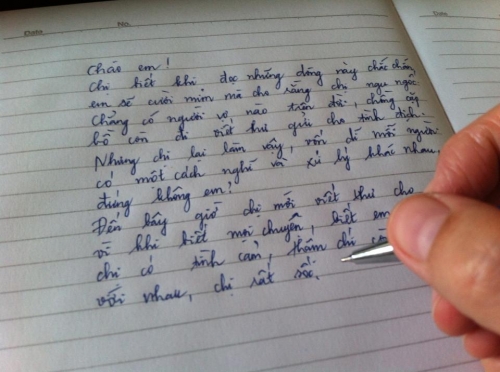 Date No.
Date
Chào em!
Chị biết khi đọc những dòng này chắc chắn
em sẽ cười mỉm mà cho rằng chị ngu ngốc
chẳng có người vợ nào trên đời, chồng cặp
bồ còn đi viết thư gửi cho tình địch.
Nhưng chị lại làm vậy, vốn dĩ mỗi người
có một cách nghĩ và xử lý khác nhau,
đúng không em?
Đến bây giờ chị mới viết thư cho
vì khi biết mọi chuyện, biết em
chị có tình cảm, thậm chí
với nhau, chị rất sốc.